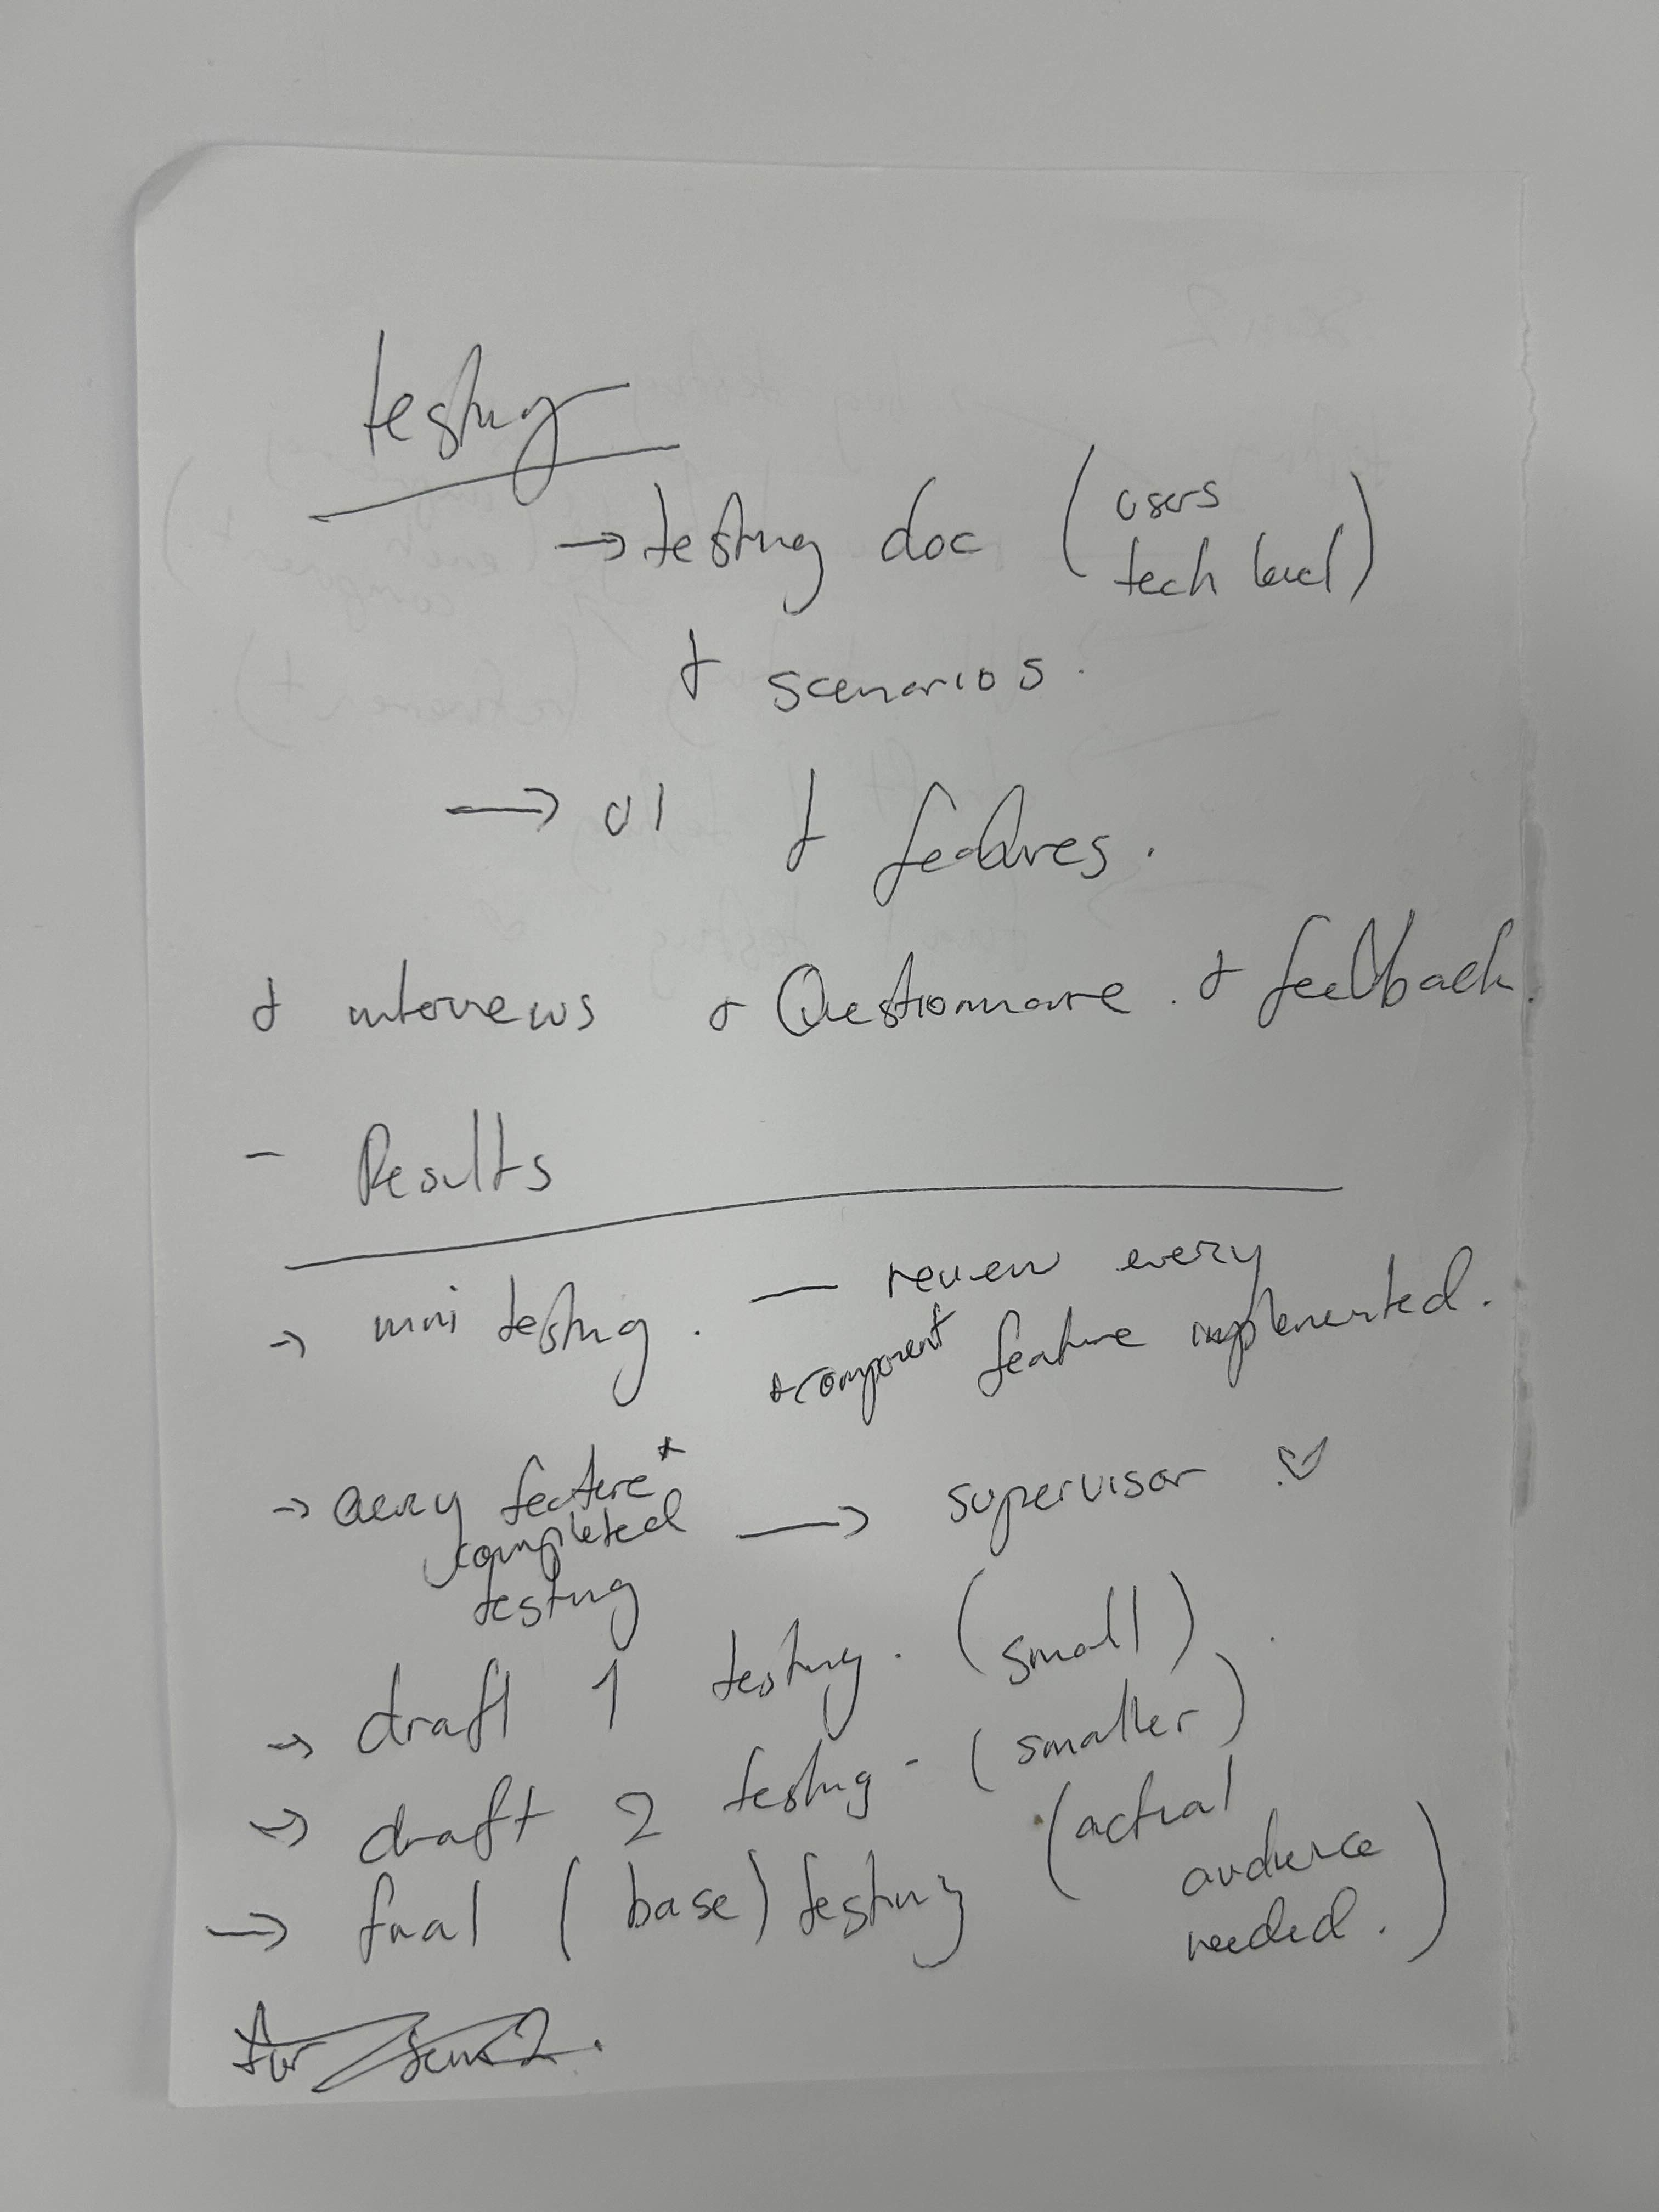 testing
→ testing doc (users
tech level)
+ scenarios.
→ UI + features.
+ interviews + Questionnaire. + feedback.
- Results
→ mini testing. — review every
+ component feature implemented.
→ every feature +
completed
testing → supervisor
→ draft 1 testing. (small)
→ draft 2 testing - (smaller)
→ final (base) testing (actual
audience
needed.)
for sem 2.